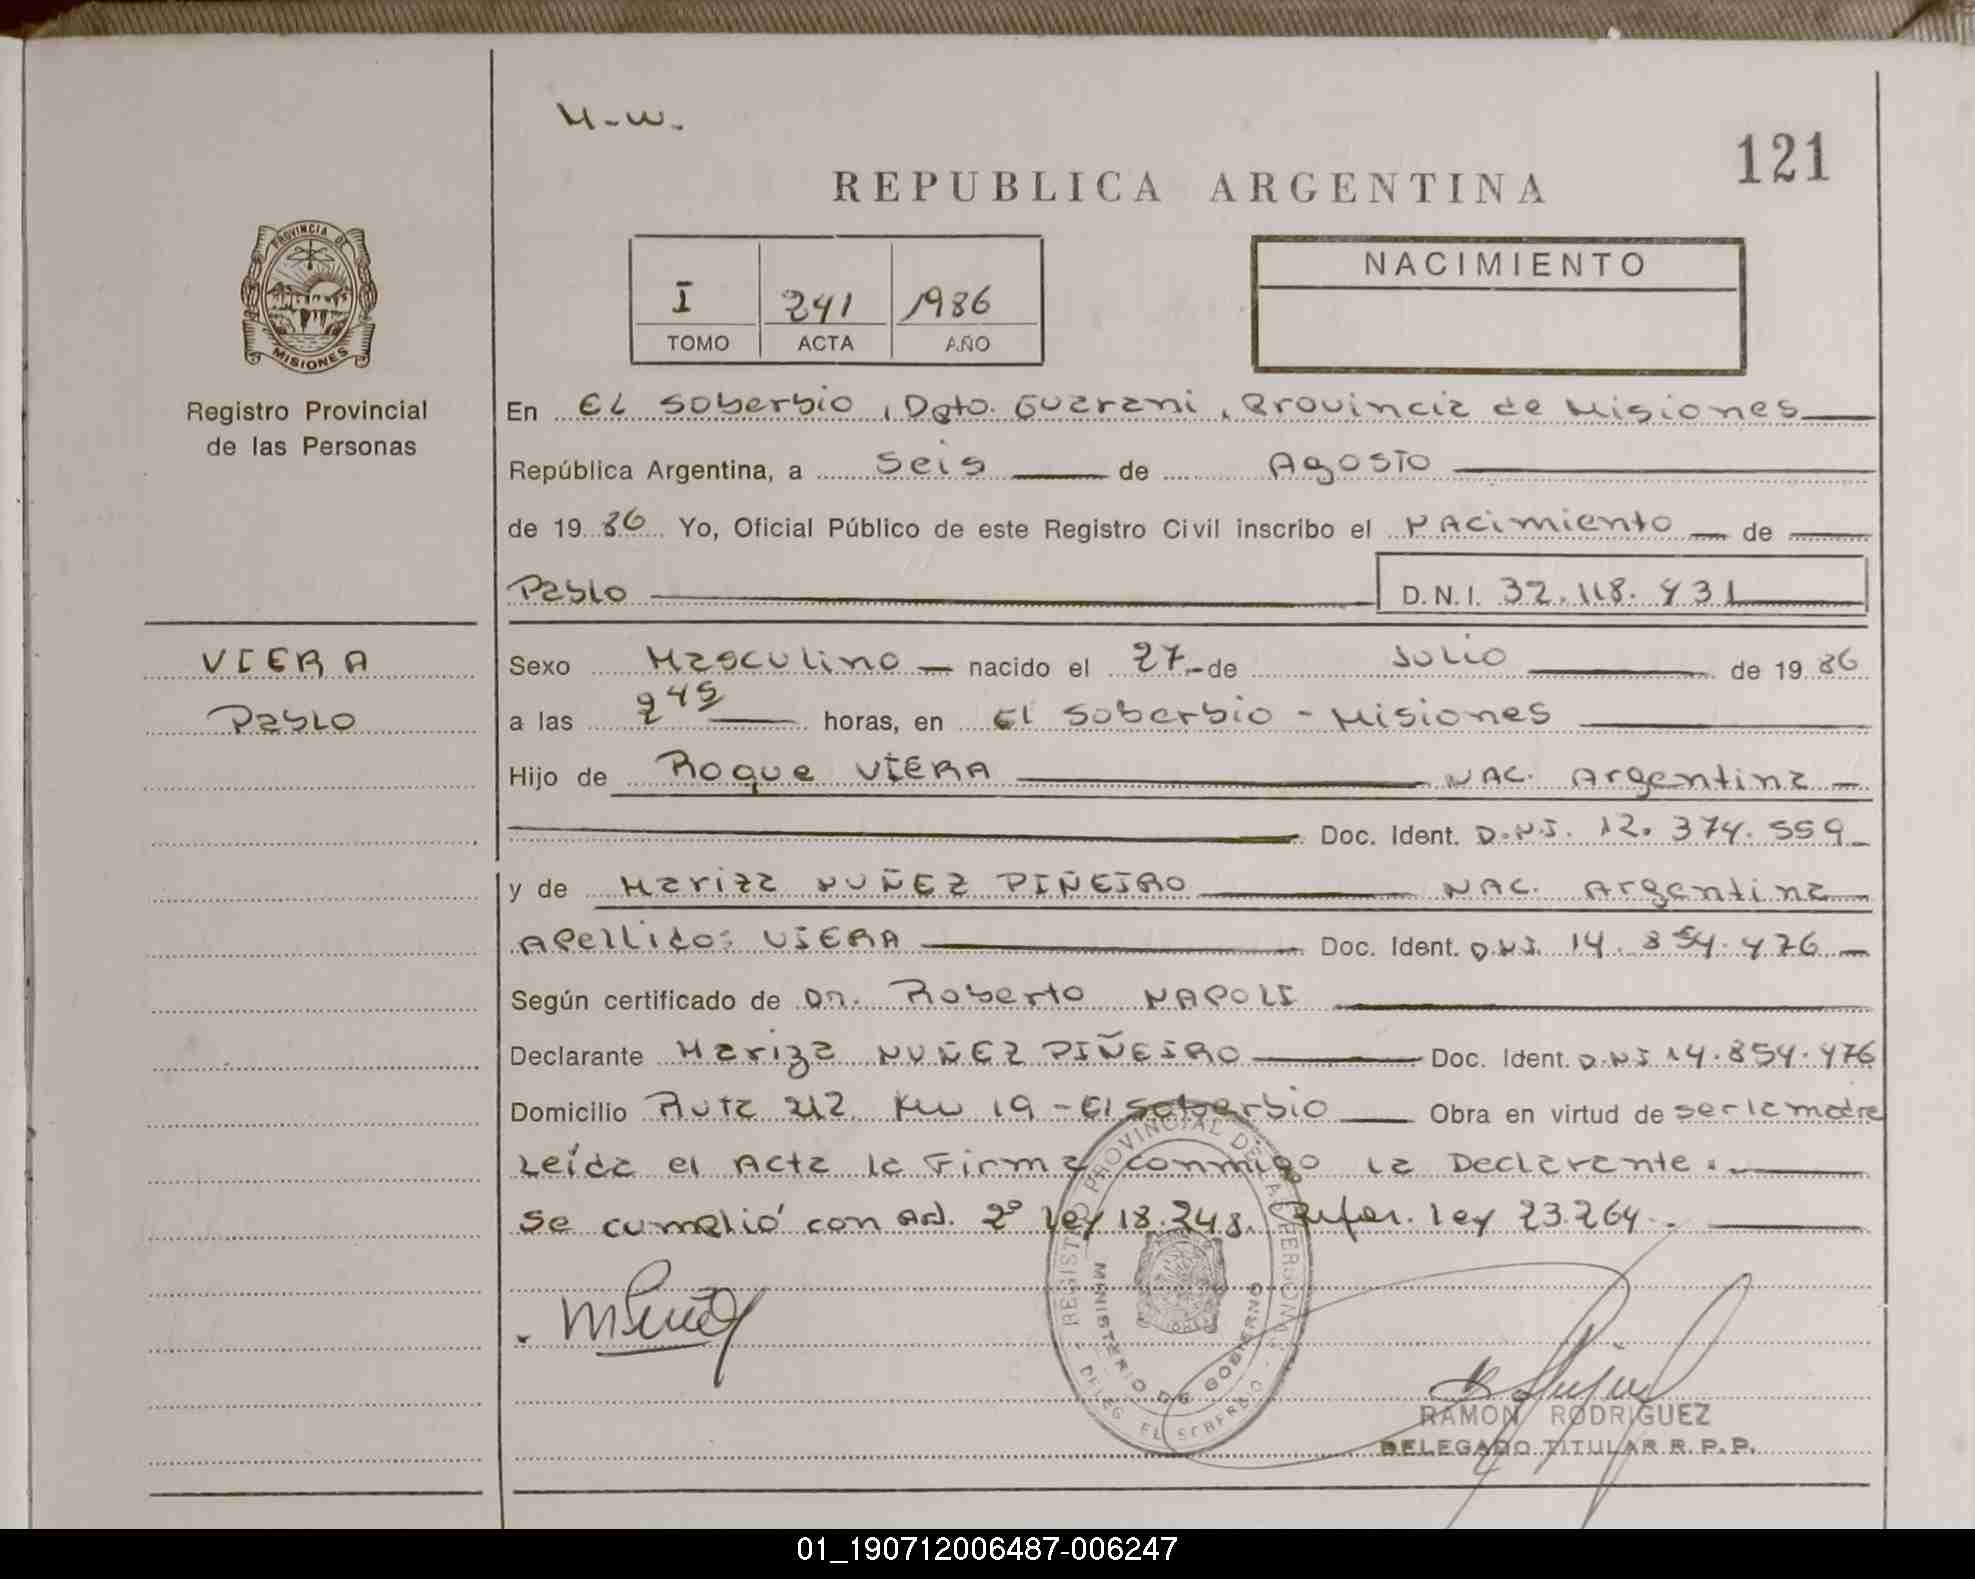 M-W-
121
REPUBLICA ARGENTINA
PROVINCIA DE
MISIONES
Registro Provincial
de las Personas
I 241 1986
TOMO ACTA AÑO
NACIMIENTO
En El Soberbio, Dpto. Guarani, Provincia de Misiones
República Argentina, a Seis de Agosto
de 1986 Yo, Oficial Público de este Registro Civil inscribo el Nacimiento de
Pablo D.N.I. 32.118.431
VIERA
Pablo
Sexo Masculino nacido el 27 de Julio de 1986
a las 2 45 horas, en El Soberbio - Misiones
Hijo de Roque VIERA NAC. Argentina
Doc. Ident. D.N.I. 12.374.559
y de Mariza NUÑEZ PIÑEIRO NAC. Argentina
Apellido: VIERA Doc. Ident. D.N.I. 14.854.476
Según certificado de Dr. Roberto NAPOLI
Declarante Mariza NUÑEZ PIÑEIRO Doc. Ident. D.N.I 14.854.476
Domicilio Ruta 212 KM 19 - El Soberbio Obra en virtud de ser la madre
Leída el Acta la Firma conmigo la Declarante.
Se cumplió con Art. 2º ley 18.248. Refor. ley 23.264.
REGISTRO PROVINCIAL DE LAS PERSONAS
MINISTERIO DE GOBIERNO
DELEG. EL SOBERBIO
RAMON RODRIGUEZ
DELEGADO TITULAR R.P.P.
01_190712006487-006247